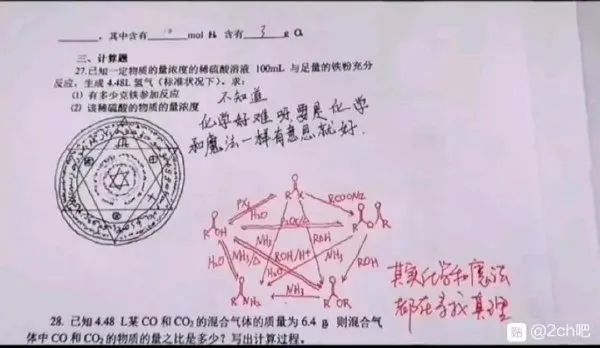 ，其中含有 mol H₂ 含有 3 g O
三、计算题
27.已知一定物质的量浓度的稀硫酸溶液 100mL 与足量的铁粉充分
反应，生成 4.48L 氢气（标准状况下）。求：
(1) 有多少克铁参加反应
(2) 该稀硫酸的物质的量浓度
不知道
化学好难呀要是化学
和魔法一样有意思就好.
O
R X
PX₃
H₂O
RCOONa
O
R OH
O O
R O R
H₂O
NH₃/Δ
NH₃
ROH/H+
ROH
NH₃
ROH
O
R NH₂
NH₃
O
R OR
其实化学和魔法
都在寻找真理
28. 已知 4.48 L某 CO 和 CO₂ 的混合气体的质量为 6.4 g 则混合气
体中 CO 和 CO₂ 的物质的量之比是多少？写出计算过程。
贴 @2ch吧